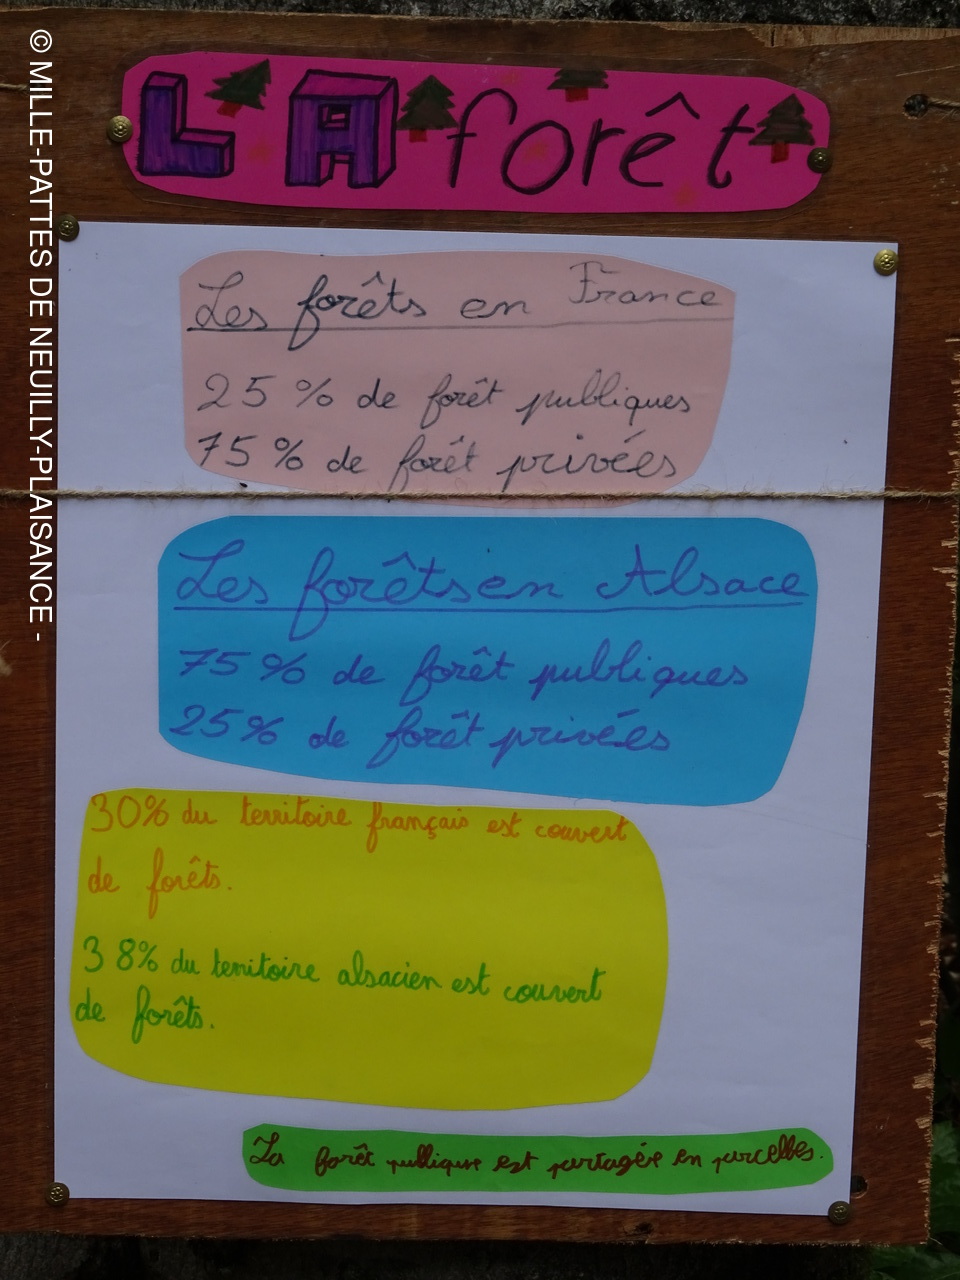 LA forêt
Les forêts en France
25 % de forêt publiques
75 % de forêt privées
Les forêts en Alsace
75 % de forêt publiques
25 % de forêt privées
30% du territoire français est couvert
de forêts.
38% du territoire alsacien est couvert
de forêts.
La forêt publique est partagée en parcelles.
© MILLE-PATTES DE NEUILLY-PLAISANCE -